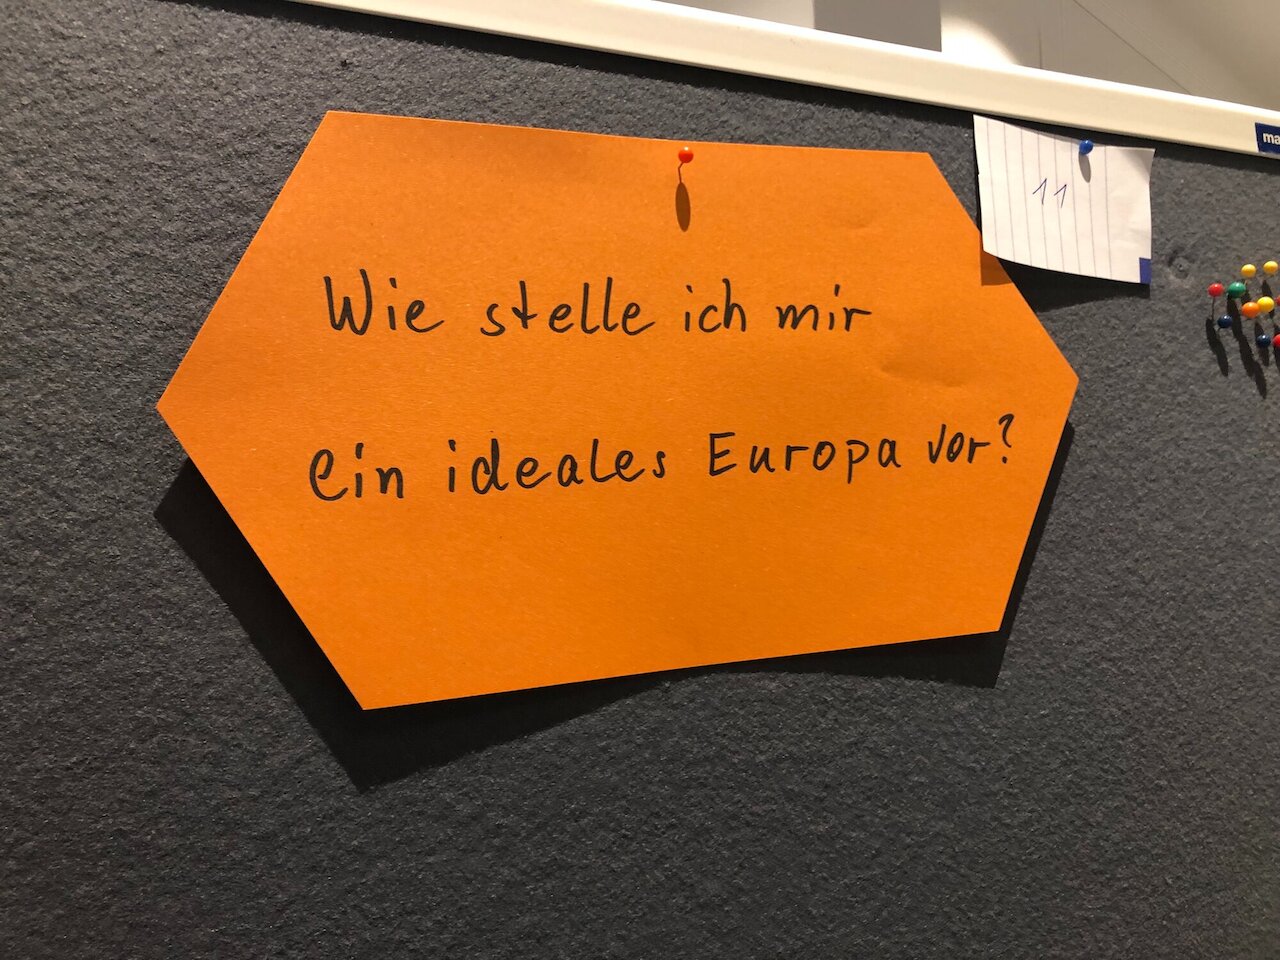 Wie stelle ich mir
ein ideales Europa vor?
11
ma